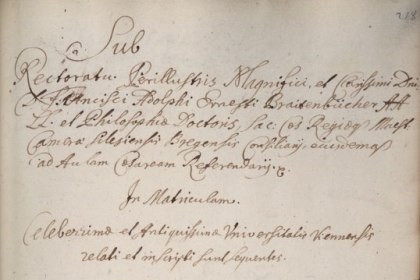 218
Sub
Rectoratu Perillustris Magnifici, et Clarissimi Dni
D. Francisci Adolphi Ernesti Braitenbücher, AA
LL. et Philosophiæ Doctoris, Sac: Cæs Regiæq Maest
Cameræ Silesiensis Bregensis Consiliarij, ejusdemq
ad Aulam Cæsaream Referendarij.
In Matriculam
Celeberrimæ et Antiquissimæ Universitatis Viennensis
relati et inscripti sunt sequentes.